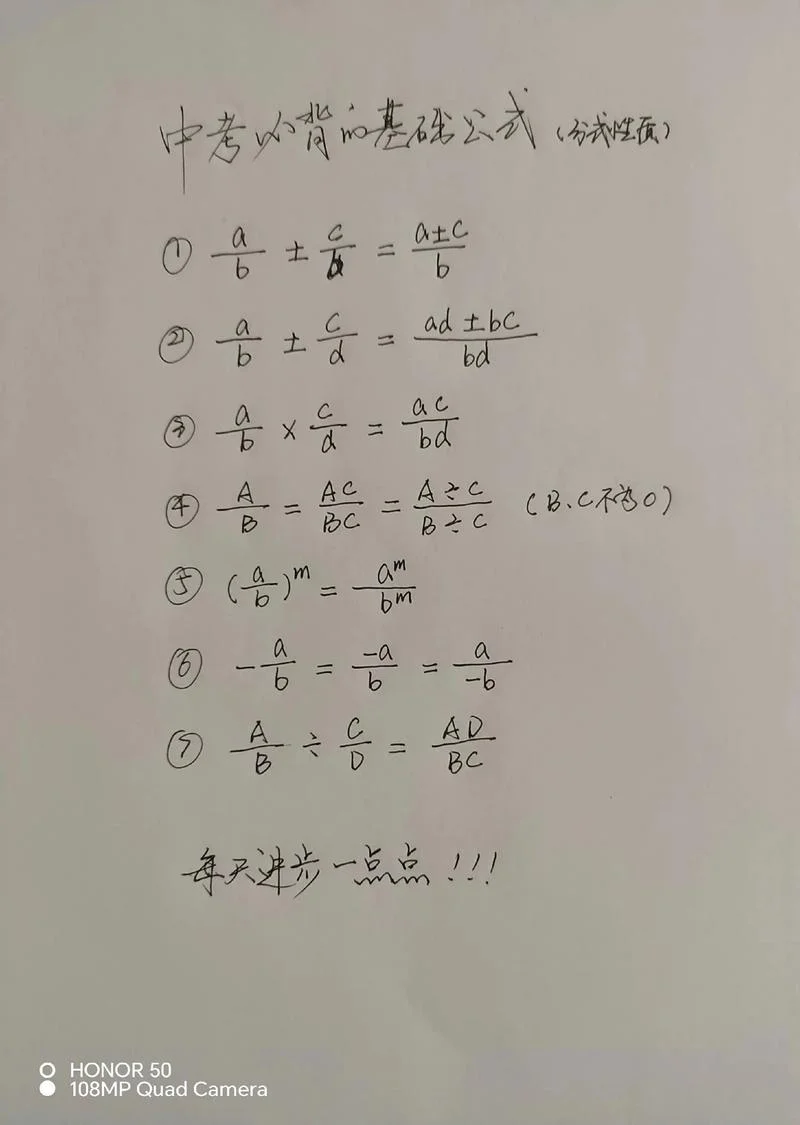 中考必背的基础公式(分式性质)
① a/b ± c/b = a±c/b
② a/b ± c/d = ad±bc/bd
③ a/b × c/d = ac/bd
④ A/B = AC/BC = A÷C/B÷C (B、C不为0)
⑤ (a/b)^m = a^m/b^m
⑥ -a/b = -a/b = a/-b
⑦ A/B ÷ C/D = AD/BC
每天进步一点点!!!
HONOR 50
108MP Quad Camera